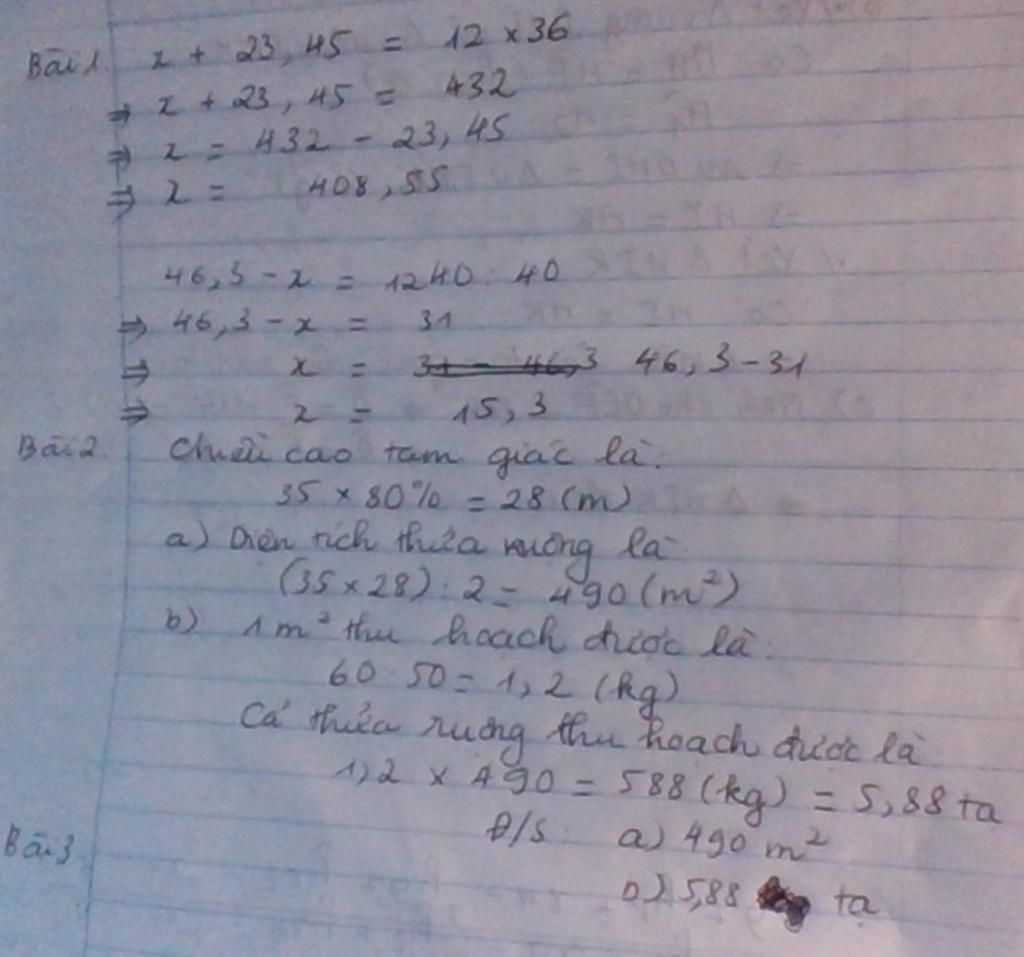 Bài 1 x + 23,45 = 12 x 36
⇒ x + 23,45 = 432
⇒ x = 432 - 23,45
⇒ x = 408,55
46,3 - x = 1240 : 40
⇒ 46,3 - x = 31
⇒ x = 31 - 46,3 46,3 - 31
⇒ x = 15,3
Bài 2 Chiều cao tam giác là:
35 x 80% = 28 (m)
a) Diện tích thửa ruộng là
(35 x 28) : 2 = 490 (m²)
b) 1m² thu hoạch được là:
60 : 50 = 1,2 (kg)
Cả thửa ruộng thu hoạch được là
1,2 x 490 = 588 (kg) = 5,88 tạ
Đ/S: a) 490 m²
b) 5,88 tạ
Bài 3